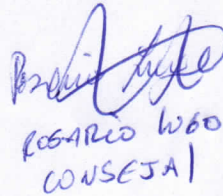 ROSARIO LUGO
CONSEJAl